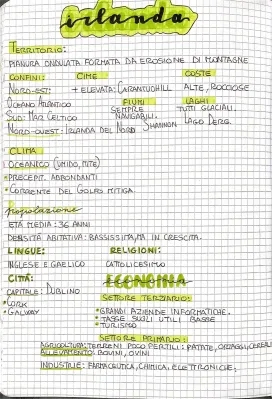 irlanda
TERRITORIO:
PIANURA ONDULATA FORMATA DA EROSIONE DI MONTAGNE
CONFINI: CIME COSTE
NORD-EST: + ELEVATA: CARANTUOHILL ALTE, ROCCIOSE
OCEANO ATLANTICO FIUMI LAGHI
SEMPRE TUTTI GLACIALI.
SUD: MAR CELTICO NAVIGABILI. LAGO DERG.
NORD-OVEST: IRLANDA DEL NORD SHANNON
CLIMA
OCEANICO (UMIDO, MITE)
PRECEPIT. ABBONDANTI
CORRENTE DEL GOLFO MITIGA.
Popolazione
ETÀ MEDIA: 36 ANNI
DENSITÀ ABITATIVA: BASSISSIMA, MA IN CRESCITA.
LINGUE: RELIGIONI:
INGLESE E GAELICO CATTOLICESIMO
CITTÀ: ECONOMIA
CAPITALE: DUBLINO SETTORE TERZIARIO:
CORK GRANDI AZIENDE INFORMATICHE.
GALWAY TASSE SUGLI UTILI BASSE
TURISMO
SETTORE PRIMARIO:
AGRICOLTURA: TERRENI POCO FERTILI: PATATE, ORTAGGI, CEREALI
ALLEVAMENTO: BOVINI, OVINI
INDUSTRIE: FARMACEUTICA, CHIMICA, ELETTRONICHE.